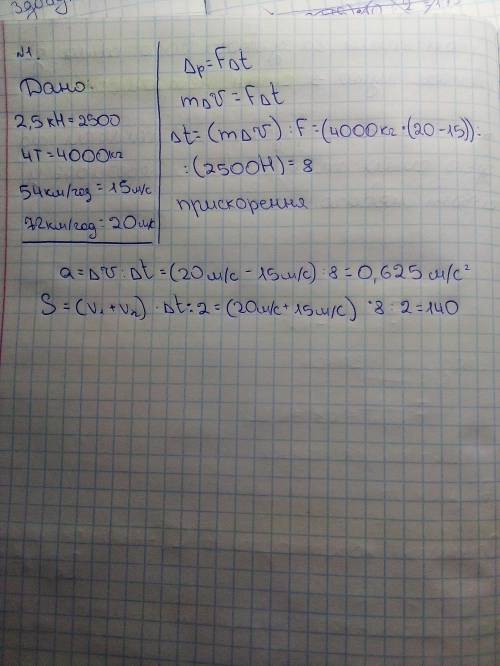 №1.
Дано:
2,5кН=2500
4Т=4000кг
54км/год=15м/с
72км/год=20м/с
Δp=FΔt
mΔV=FΔt
Δt=(mΔV):F=(4000кг·(20-15)):
:(2500Н)=8
прискорення
a=ΔV:Δt=(20м/с-15м/с):8=0,625м/с²
S=(V₁+V₂)·Δt:2=(20м/с+15м/с)·8:2=140